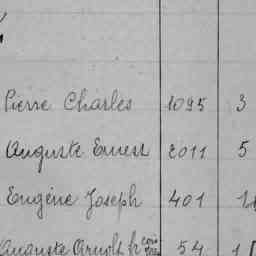 Pierre Charles 1095 3
Auguste Ernest 2011 5
Eugène Joseph 401
Auguste Arnold 54